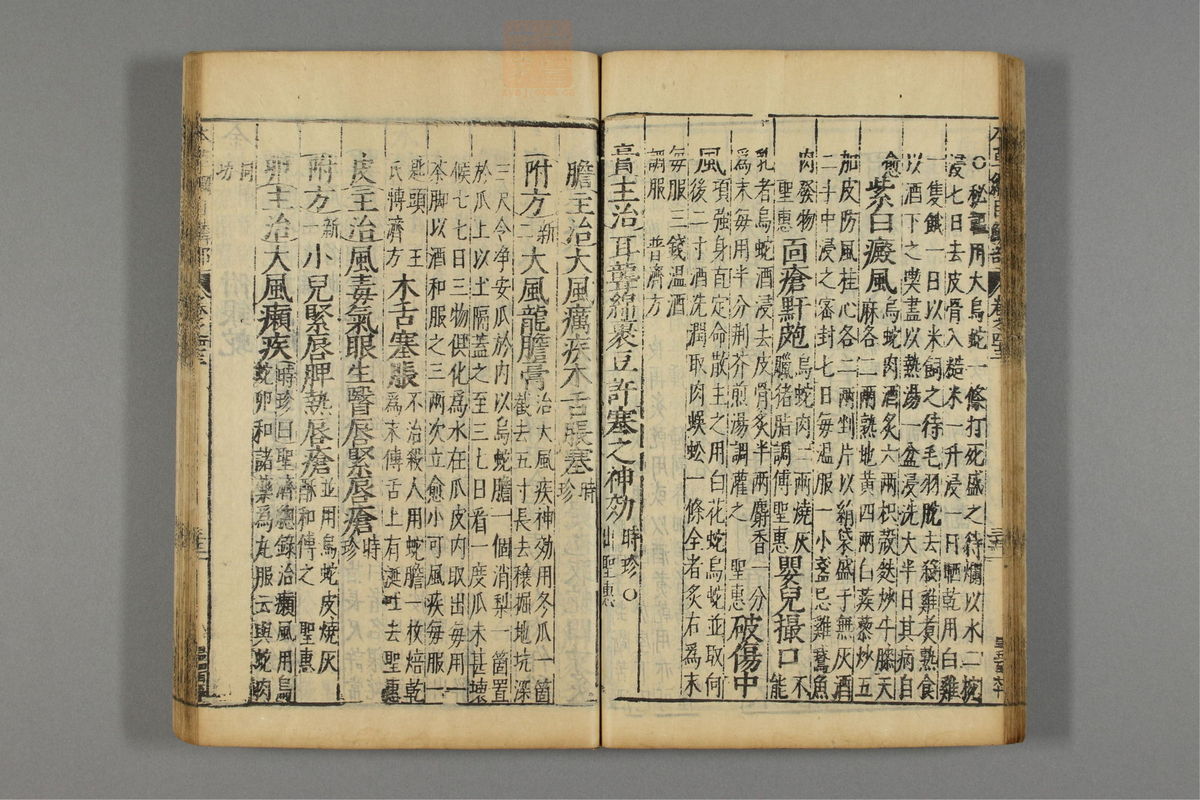 ○秘訣用大烏蛇一條打死盛之待爛以水二椀
浸七日去皮骨入糙米一升浸一日晒乾用白雞
一隻餓一日以米飼之待毛羽脫去殺雞煮熟食
以酒下之喫盡以熱湯一盆浸洗大半日其病自
愈 紫白癜風烏蛇肉酒炙六兩枳殼麩炒牛膝天
麻各二兩熟地黃四兩白蒺藜炒五
加皮防風桂心各二兩剉片以絹袋盛于無灰酒
二斗中浸之密封七日每溫服一小盞忌雞鵞魚
肉發物
聖惠 面瘡䵟皰烏蛇肉二兩燒灰
臘猪脂調傅聖惠 嬰兒撮口不能
乳者烏蛇酒浸去皮骨炙半兩麝香一分
為末每用半分荆芥煎湯調灌之 聖惠 破傷中
風項強身直定命散主之用白花蛇烏蛇並取何
後二寸酒洗潤取肉蜈蚣一條全者炙右為末
每服三錢温酒
調服 普濟方
膏主治耳聾綿褁豆許塞之神効時珍○
出聖惠
膽主治大風癘疾木舌脹塞時
珍
附方新
二大風龍膽膏治大風疾神効用冬瓜一箇
截去五寸長去穰掘地坑深
三尺令净安瓜於內以烏蛇膽一個消梨一箇置
於瓜上以土隔蓋之至三七日看一度瓜未甚壞
候七七日三物俱化為水在瓜皮内取出每用一
茶脚以酒和服之三兩次立愈小可風疾每服一
匙頭 王
氏博濟方 木舌塞脹不治殺人用蛇膽一枚焙乾
為末傅舌上有涎吐去聖惠
皮主治風毒氣眼生瞖唇緊唇瘡時
珍
附方新
一小兒緊唇脾熱唇瘡並用烏蛇皮燒灰
酥和傅之 聖惠
卵主治大風癩疾時珍曰聖濟總錄治癩風用烏
蛇卵和諸藥為丸服云與蛇肉
同
功